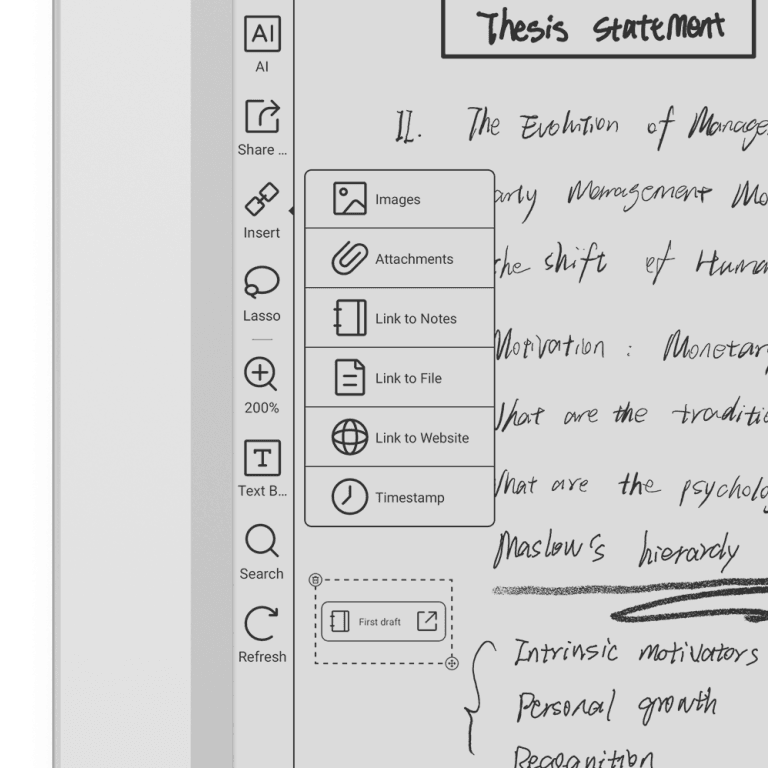 AI
AI
Share ...
Insert
Lasso
200%
T
Text B...
Search
Refresh
Images
Attachments
Link to Notes
Link to File
Link to Website
Timestamp
First draft
Thesis statement
II. The Evolution of Manage
arly Management Mo
the shift of Huma
Motivation : Monetar
What are the traditio
What are the psycholog
Maslow's hierardy
Intrinsic motivators
Personal growth
Recognition